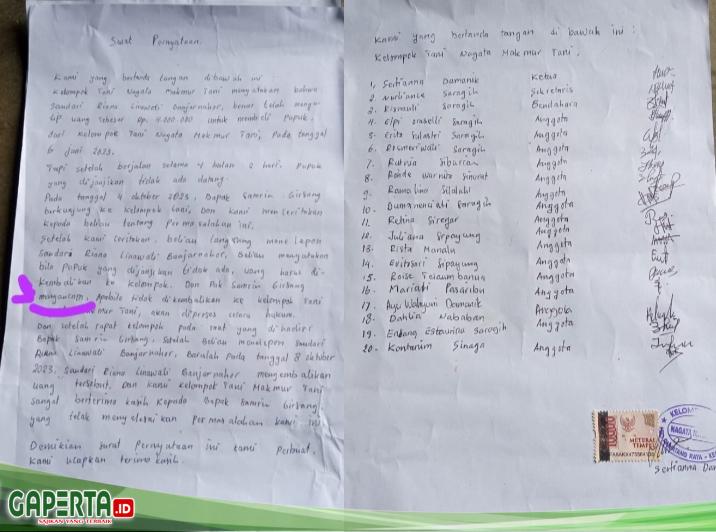 Surat Pernyataan.
Kami yang bertanda tangan dibawah ini
Kelompok Tani Nagata Makmur Tani menyatakan bahwa
Saudari Riana Linawati Banjarnahor, benar telah
uang sebesar Rp. 4.000.000 untuk membeli Pupuk.
dari Kelompok Tani Nagata Makmur Tani, Pada tanggal
6 Juni 2023.
Tapi setelah berjalan selama 4 bulan 2 hari. Pupuk
yang dijanjikan tidak ada datang.
Pada tanggal 4 Oktober 2023, Bapak Samrin Girsang
berkunjung ke Kelompok tani, Dan Kami menceritakan
Kepada beliau tentang Permasalahan ini.
Setelah kami ceritakan, beliau langsung menelepon
Saudari Riana Linawati Banjarnahor, Beliau mengatakan
bila Pupuk yang dijanjikan tidak ada, uang harus di-
kembalikan ke kelompok. Dan Pak Samrin Girsang
Apabila tidak di kembalikan ke kelompok Tani
Makmur Tani, akan diproses secara hukum.
Dan setelah rapat kelompok pada saat yang dihadiri
Bapak Samrin Girsang, Setelah Beliau menelepon Saudari
Riana Linawati Banjarnahor, Barulah Pada tanggal 8 oktober
2023. Saudari Riana Linawati Banjarnahor mengembalikan
uang tersebut. Dan kami kelompok Tani Makmur Tani
sangat berterima kasih Kepada Bapak Samrin Girsang
yang telah menyelesaikan Permasalahan kami ini
Demikian surat Pernyataan ini kami Perbuat,
Kami ucapkan terima kasih.
Kami yang bertanda tangan di bawah ini :
Kelompok Tani Nagata Makmur Tani.
1. Sertianna Damanik Ketua
2. Nurliance Saragih Sekretaris
3. Rismauli Saragih Bendahara
4. Elpi Saragih Anggota
5. Erita Sulastri Saragih Anggota
6. Rosmeriwati Saragih Anggota
7. Rutnia Sibarran Anggota
8. Ronde Warnita Sinurat Anggota
9. Rosmalina Silalahi Anggota
10. Saragih Anggota
11. Retina Siregar Anggota
12. Juliana Sipayung Anggota
13. Rista Manalu Anggota
14. Sipayung Anggota
15. Roise Anggota
16. Mariati Pasaribu Anggota
17. Ayu Wahyuni Damanik Anggota
18. Dahlia Nababan Anggota
19. Endang Estaurina Saragih Anggota
20. Kontarium Sinaga Anggota
10000
METERAI
TEMPEL
KELOM
NAGATA
RAYA
Sertianna Dam
GAPERTA.ID
SAJIKAN YANG TERBAIK